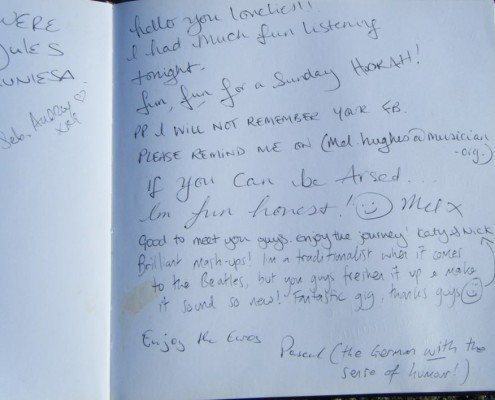 WERE
JULES
UNIESA.
Seb, Audrey ♡
hello you lovelies!!!
I had much fun listening
tonight.
fun, fun for a Sunday HOORAH!
PP I WILL NOT REMEMBER YOUR FB.
PLEASE REMIND ME ON (mel.hughes@musician
.org.)
If you Can be Arsed...
Im fun honest! ☺ Mel x
Good to meet you guys. enjoy the journey! Katy & Nick
Brilliant mash-ups! I'm a traditionalist when it comes
to the Beatles, but you guys freshen it up & make
it sound so new! Fantastic gig, thanks guys ☺
Enjoy the Euros
Pascal (the German with the
sense of humor!)